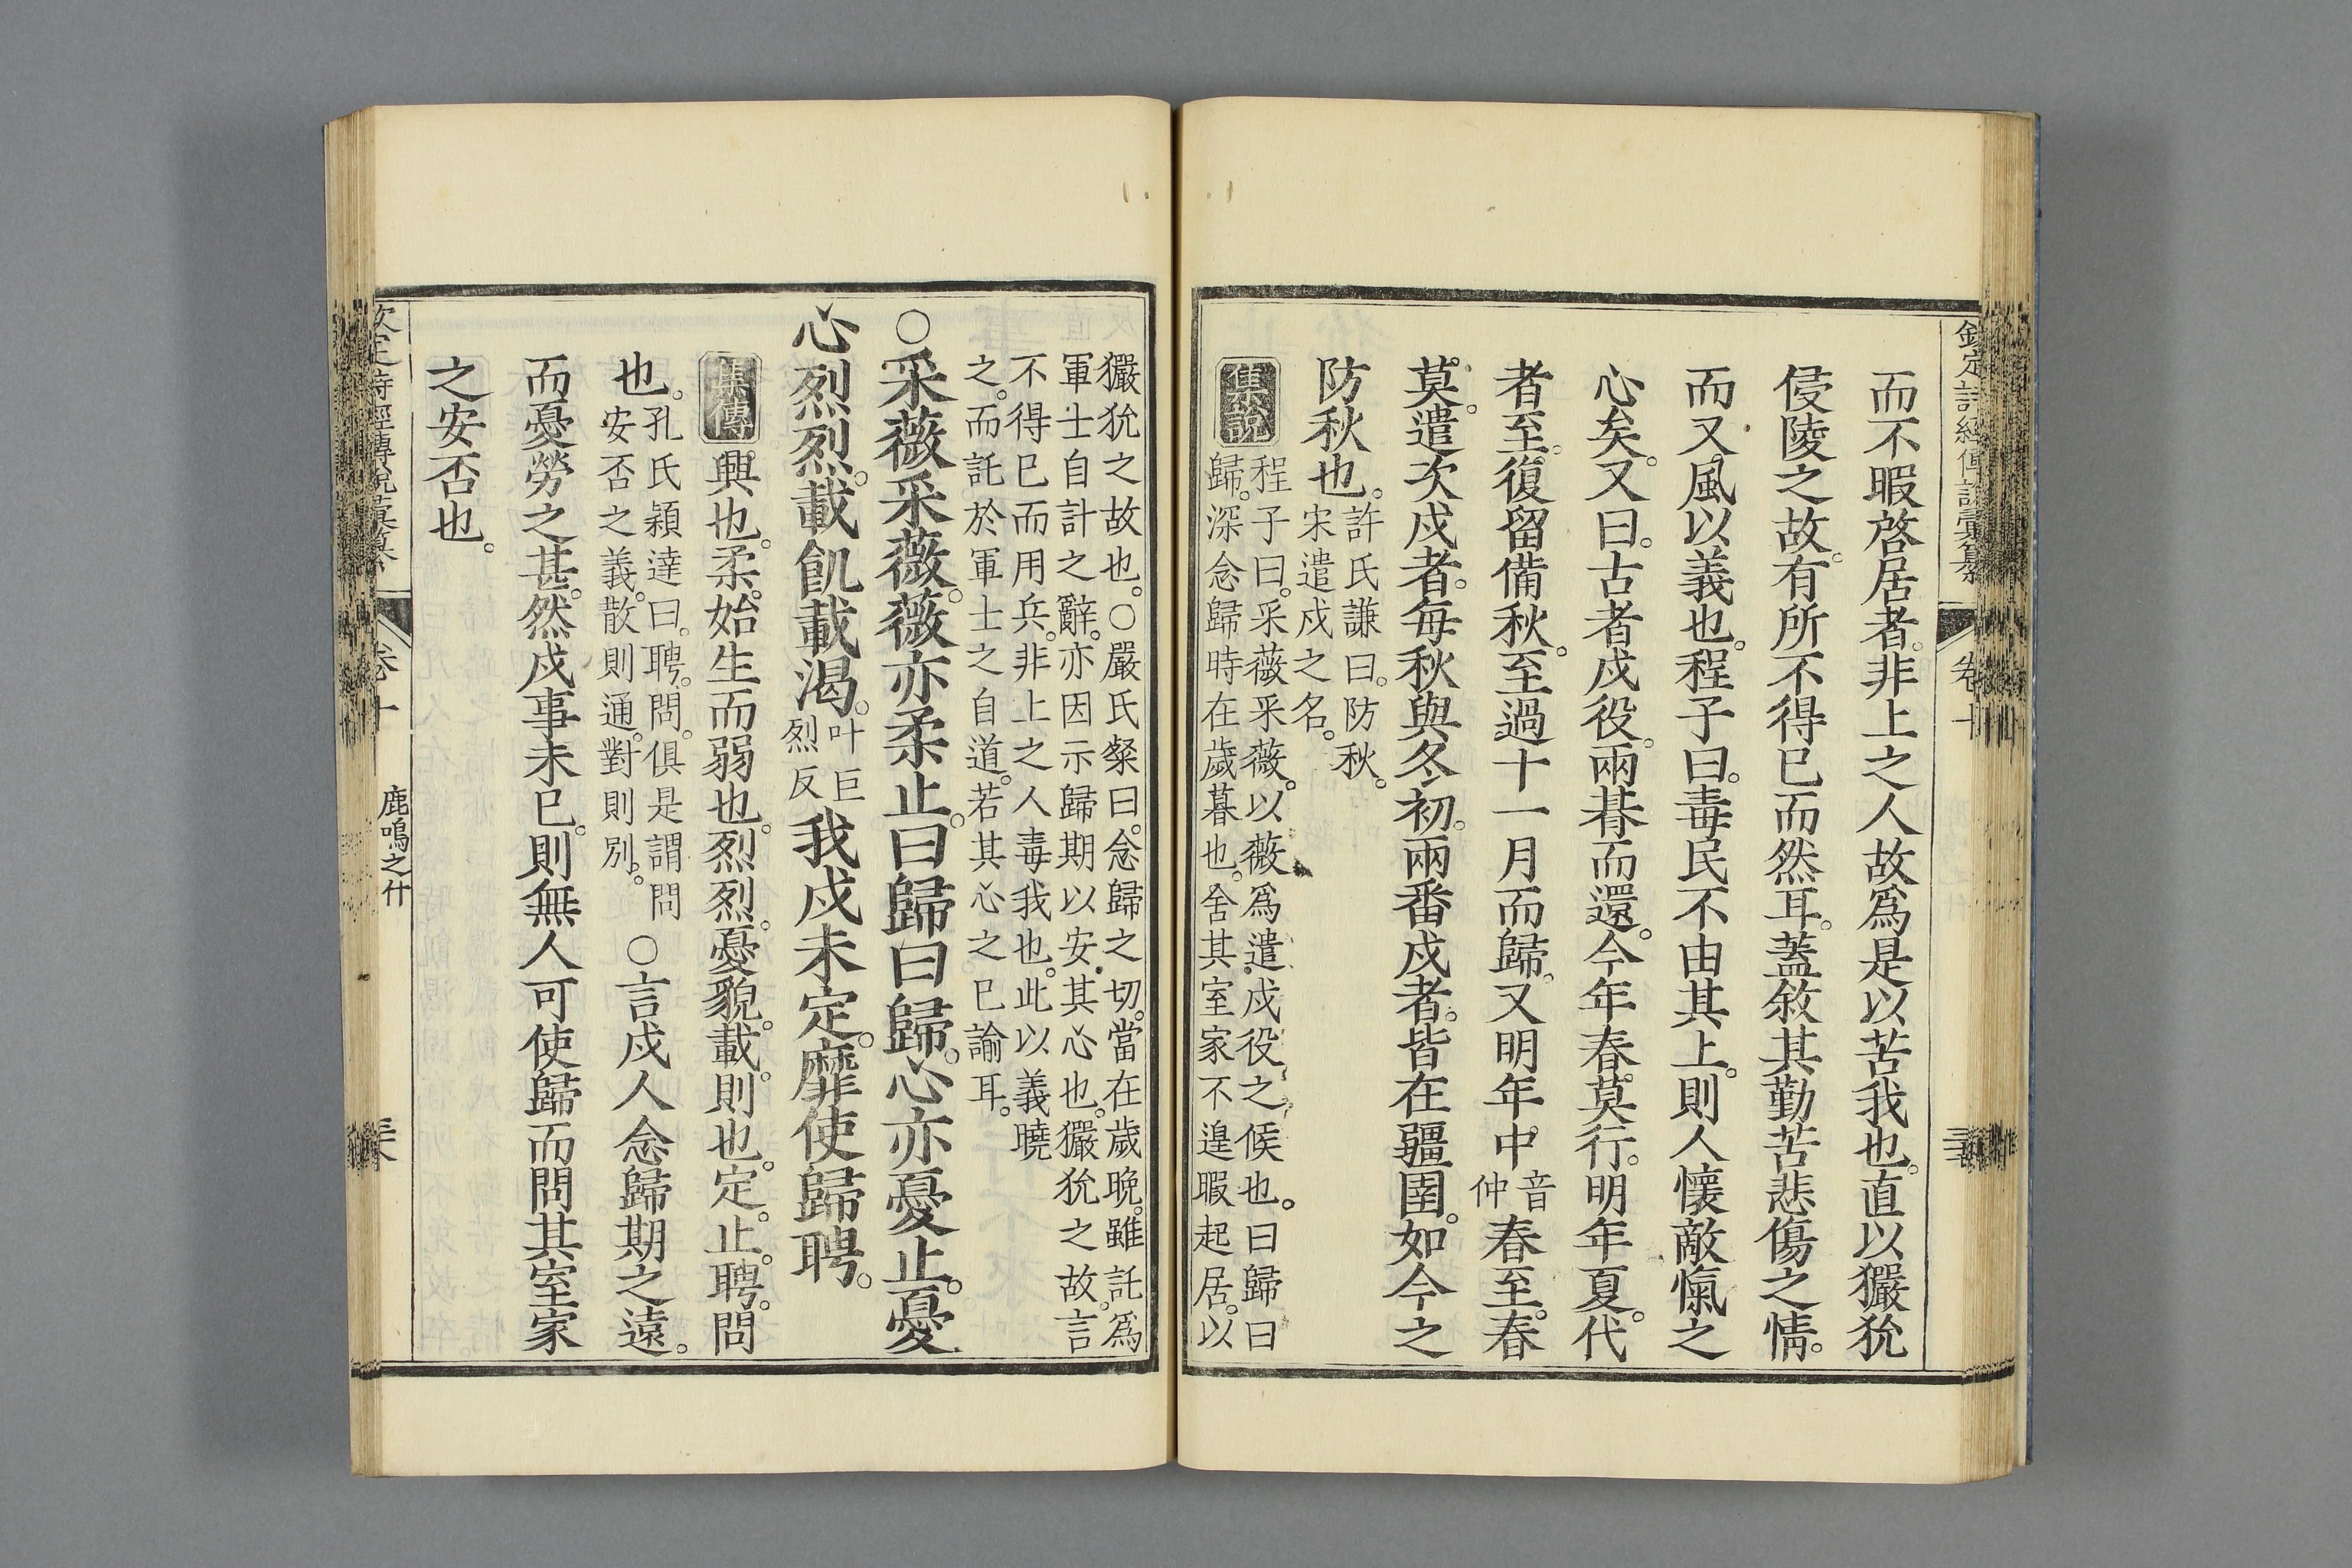 欽定詩經傳說彙纂 卷十
而不暇啓居者。非上之人故爲是以苦我也。直以玁狁
侵陵之故。有所不得已而然耳。蓋敘其勤苦悲傷之情。
而又風以義也。程子曰。毒民不由其上。則人懷敵愾之
心矣。又曰。古者戍役。兩朞而還。今年春莫行。明年夏。代
者至。復留備秋。至過十一月而歸。又明年中音仲春至。春
莫。遣次戍者。每秋與冬初。兩番戍者。皆在疆圉。如今之
防秋也。許氏謙曰。防秋。
宋遣戍之名。
集說 程子曰。采薇采薇。以薇爲遣戍役之候也。曰歸曰
歸。深念歸時在歲暮也。舍其室家不遑暇起居。以
玁狁之故也。○嚴氏粲曰。念歸之切。當在歲晚。雖託爲
軍士自計之辭。亦因示歸期以安其心也。玁狁之故。言
不得已而用兵。非上之人毒我也。此以義曉
之。而託於軍士之自道。若其心之已諭耳。
○采薇采薇。薇亦柔止。曰歸曰歸。心亦憂止。憂
心烈烈。載飢載渴。叶巨烈反我戍未定。靡使歸聘。
集傳 興也。柔。始生而弱也。烈烈。憂貌。載。則也。定。止。聘。問
也。孔氏穎達曰。聘。問。俱是謂問
安否之義。散則通。對則別。
○言戍人念歸期之遠。
而憂勞之甚。然戍事未已。則無人可使歸而問其室家
之安否也。
卷十 鹿鳴之什